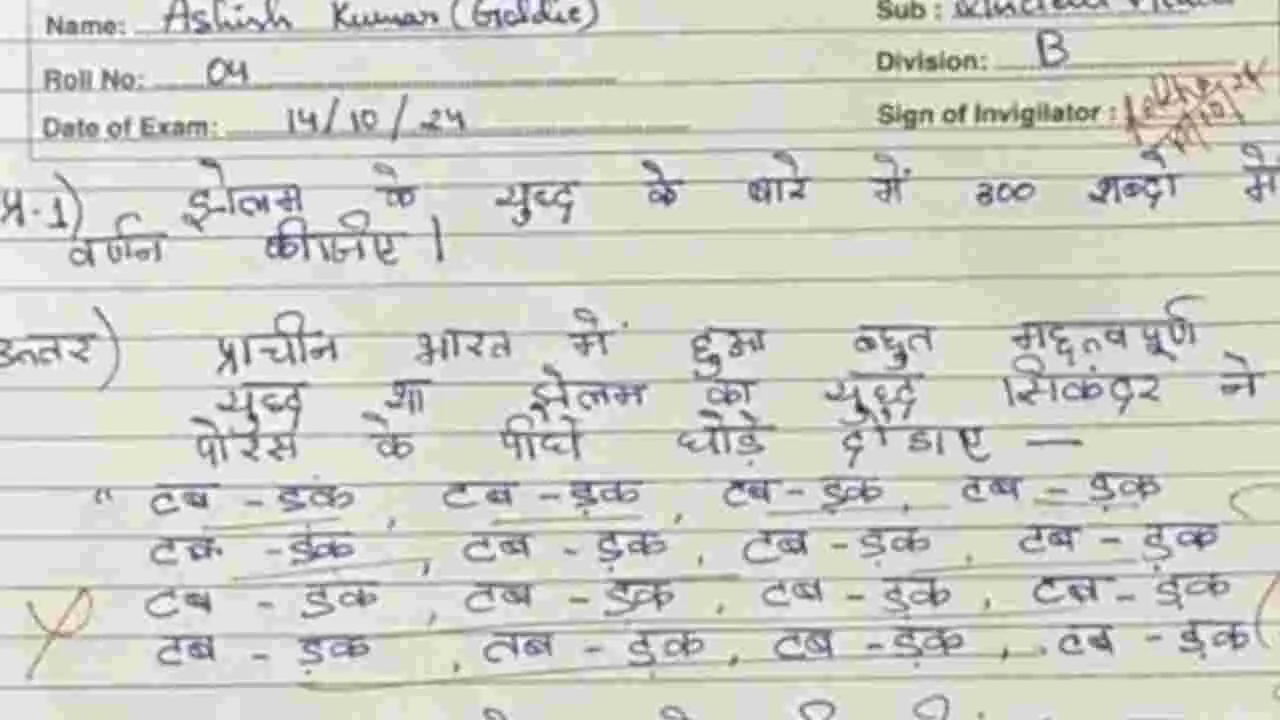 Name: Ashish Kumar (Goldie)
Sub : Ancient
Roll No: 04
Division: B
Date of Exam: 14/10/24
Sign of Invigilator :
प्र.1) झेलम के युध्द के बारे में 300 शब्दो मे
वर्णन कीजिए ।
उत्तर) प्राचीन भारत में हुआ बहुत महत्वपूर्ण
युध्द था झेलम का युध्द सिकंदर ने
पोरस के पीछे घोड़े दौडाए —
" टब - डक , टब - ड़क , टब - ड़क , टब - ड़क
टब - डक , टब - ड़क , टब - ड़क , टब - ड़क
टब - डक , टब - डक , टब - ड़क , टब - ड़क
टब - ड़क , तब - ड़क , टब - ड़क , टब - ड़क